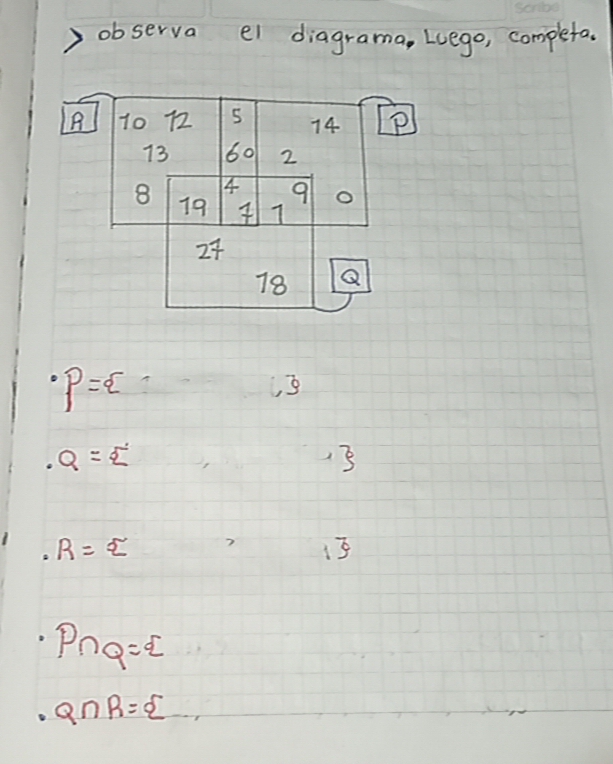 Scribe
> observa el diagrama. Luego, completa.
R 10 12 5 14 P
13 60 2
8 19 4 7 1 9 0
27
18 Q
• P = { , }
. Q = { , , }
. R = { , , }
• P∩Q = {
. Q∩R = {